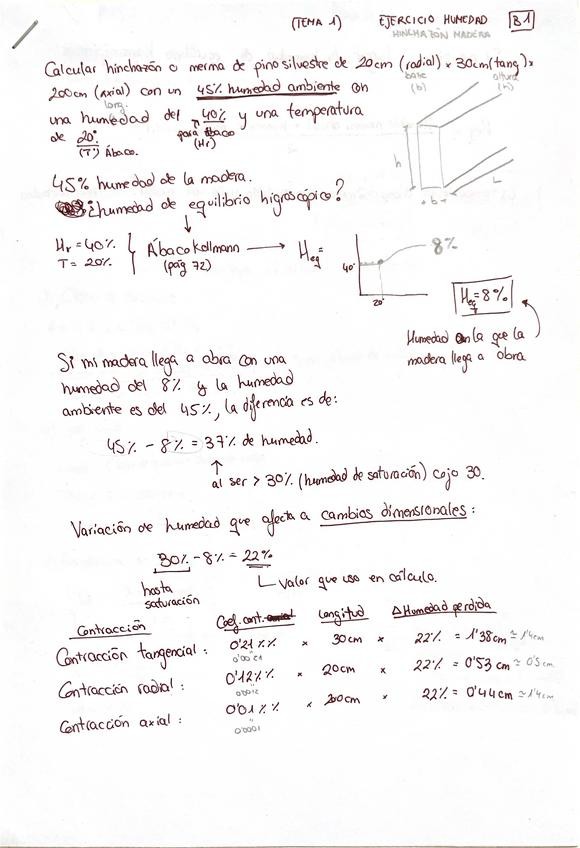 (TEMA 1) EJERCICIO HUMEDAD B1
HINCHAZÓN MADERA
Calcular hinchazón o merma de pino silvestre de 20cm (radial) x 30cm (tang) x
base (b) altura (h)
200cm (axial) con un 45% humedad ambiente con
long.
una humedad del 40% y una temperatura
para ábaco (Hr)
de 20°
(T°) Ábaco.
h
b
L
45% humedad de la madera.
¿humedad de equilibrio higroscópico?
Hr = 40%
T = 20%
Ábaco Kollmann
(pág 72)
Heq =
40°
20°
8%
Heq = 8%
Humedad con la que la
madera llega a obra
Si mi madera llega a obra con una
humedad del 8% y la humedad
ambiente es del 45%, la diferencia es de:
45% - 8% = 37% de humedad.
al ser > 30% (humedad de saturación) cojo 30.
Variación de humedad que afecta a cambios dimensionales:
30% - 8% = 22%
hasta
saturación
Valor que uso en cálculo.
Contracción Coef. cont. Longitud Δ Humedad perdida
Contracción tangencial: 0'21%% x 30cm x 22% = 1'38cm ≃ 1'4cm
0'0021
Contracción radial: 0'12%% x 20cm x 22% = 0'53cm ≃ 0'5cm
0'0012
Contracción axial: 0'01%% x 200cm x 22% = 0'44cm ≃ 1'4cm
0'0001